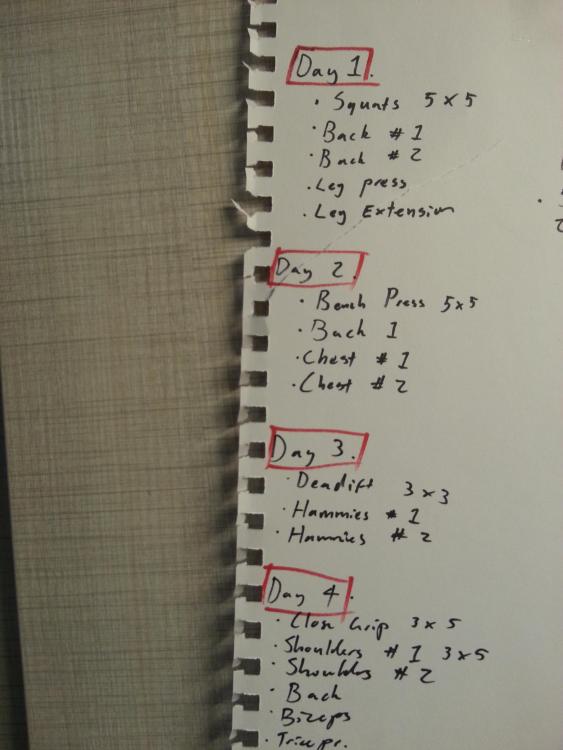 Day 1.
· Squats 5 x 5
· Back # 1
· Back # 2
· Leg press
· Leg Extension
Day 2.
· Bench Press 5x5
· Back 1
· Chest # 1
· Chest # 2
Day 3.
· Deadlift 3 x 3
· Hammies # 1
· Hammies # 2
Day 4.
· Close Grip 3 x 5
· Shoulders # 1 3x5
· Shoulders # 2
· Back
· Biceps
· Tricep.